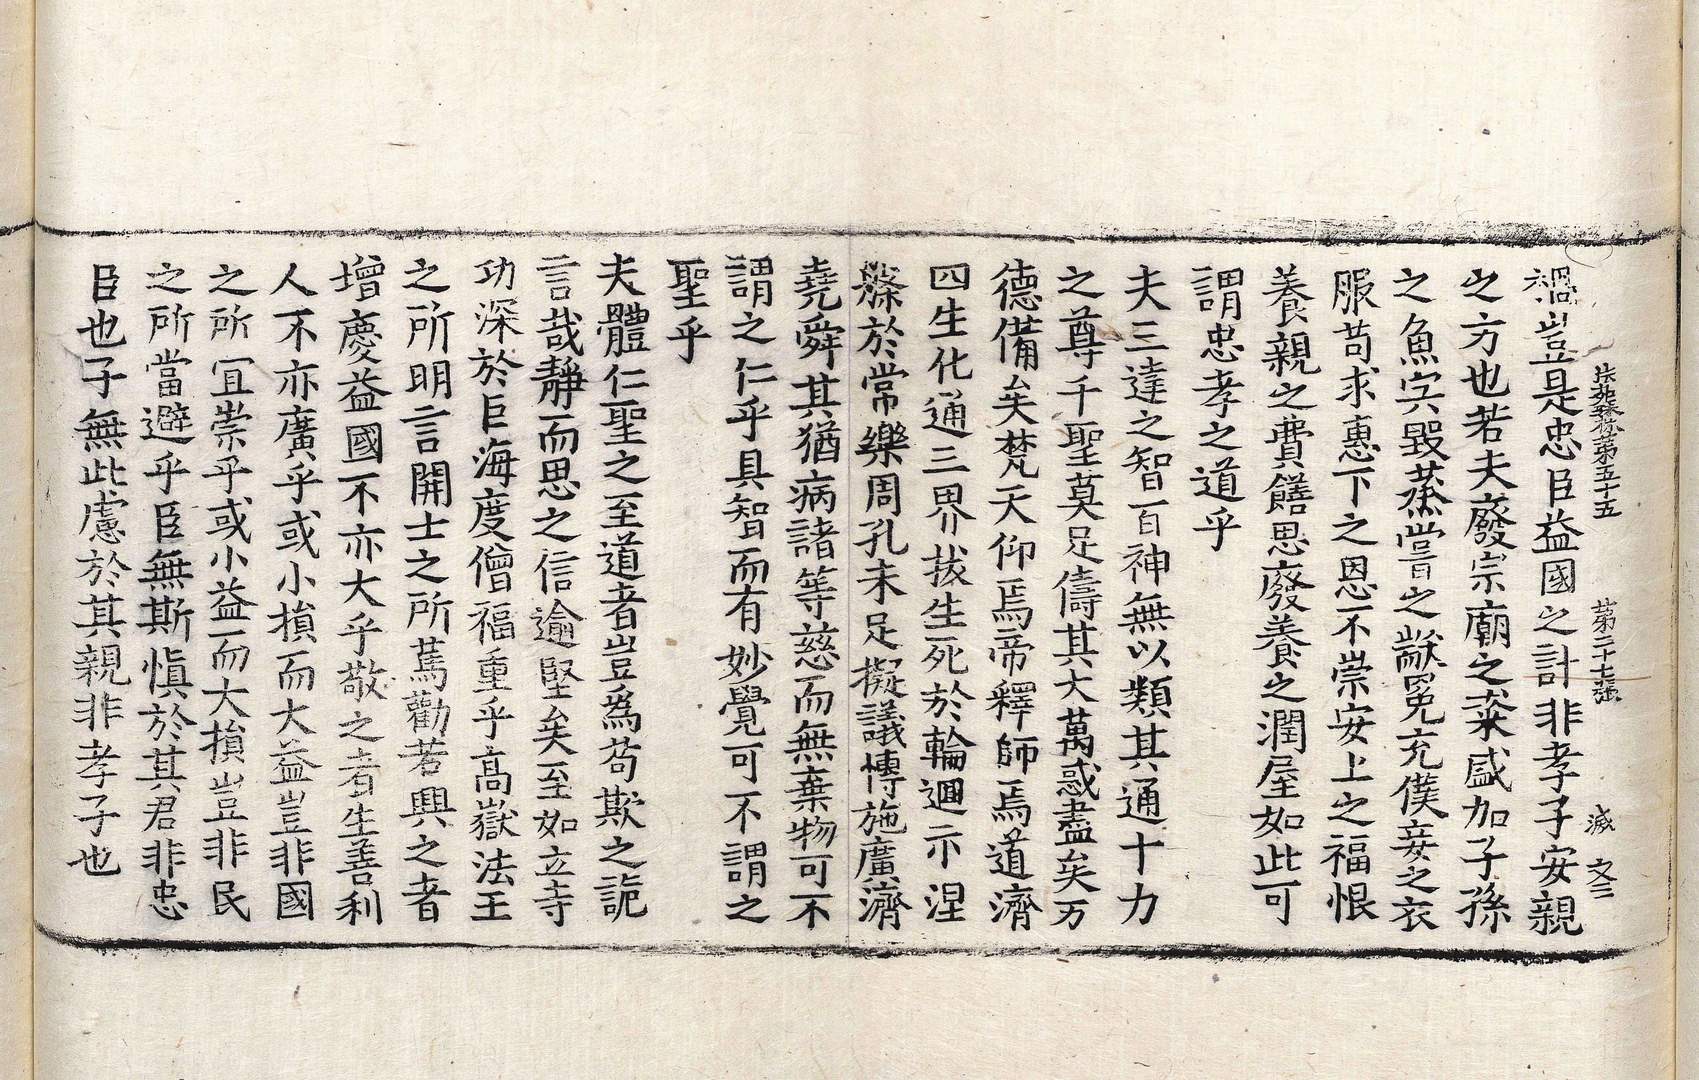 法苑珠林第五十五 第二十七張 滅 文三
禍豈是忠臣益國之計非孝子安親
之方也若夫廢宗廟之粢盛加子孫
之魚宍毀蒸甞之黻冕充僕妾之衣
服苟求惠下之恩不崇安上之福恨
養親之費饍思廢養之潤屋如此可
謂忠孝之道乎
夫三達之智百神無以類其通十力
之尊千聖莫足儔其大萬惑盡矣万
德備矣梵天仰焉帝釋師焉道濟
四生化通三界拔生死於輪迴示涅
槃於常樂周孔未足擬議博施廣濟
堯舜其猶病諸等慈而無棄物可不
謂之仁乎具智而有妙覺可不謂之
聖乎
夫體仁聖之至道者豈爲苟欺之詭
言哉靜而思之信逾堅矣至如立寺
功深於巨海度僧福重乎高嶽法王
之所明言開士之所篤勸若興之者
增慶益國不亦大乎敬之者生善利
人不亦廣乎或小損而大益豈非國
之所冝崇乎或小益而大損豈非民
之所當避乎臣無斯慎於其君非忠
臣也子無此慮於其親非孝子也